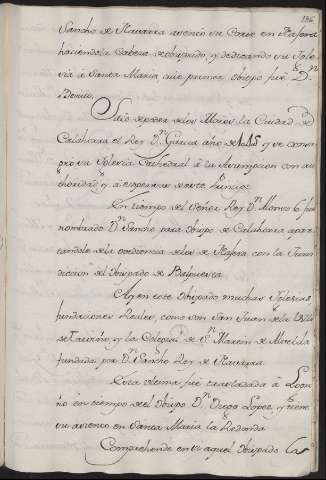 196
Sancho de Navarra asentó su Corte en Naxera
haciendola Cabeza de Obispado, y dedicando su Igle
sia à Santa Maria cuio primer Obispo fué D.n
Benito.
Salió de poder de los Moros la Ciudad de
Calahorra el Rey D.n Garcia año de 1045 y se consa
gró su Iglesia Cathedral à la Assumpcion con au
thoridad y à expensas de este Principe.
En tiempo del Señor Rey D.n Alonso 6.º fue
nombrado D.n Sancho para Obispo de Calahorra apar
tandole de la obediencia de los de Naxera con la Juris
diccion del Obispado de Balpuesta.
Ay en este Obispado muchas Iglesias,
fundaciones Reales, como son San Juan de la Villa
de Laurino, y la Colegial de S.n Martin de Alvelda
fundada por D.n Sancho Rey de Navarra.
Esta ultima fue trasladada à Logro
ño en tiempo de el Obispo D.n Diego Lopez, y tiene
su asiento en Santa Maria la Redonda
Comprehende en si aquel Obispado las